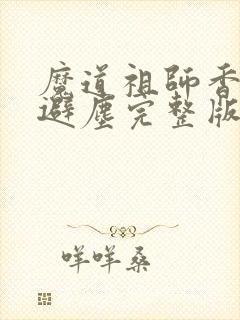 魔道祖師香
避塵完整版
咩咩桑